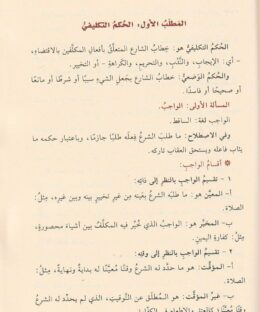 المطلب الأول: الحكم التكليفي
الحُكمُ التكليفيُّ هو: خطابُ الشارع المتعلِّق بأفعالِ المكلَّفين بالاقتضاء،
- أي: الإيجاب، والنَّدْب، والتحريم، والكَراهةِ - أو التخيير.
والحُكمُ الوَضعيُّ: خطابُ الشارع بجَعلِ الشيءِ سببًا أو شرطًا أو مانعًا
أو صحيحًا أو فاسدًا.
المسألة الأولى: الواجبُ.
الواجب لغة: الساقط.
وفي الاصطلاح: ما طلبَ الشرعُ فِعلَه طلبًا جازمًا، وباعتبار حكمه ما
يثاب فاعله ويستحق العقاب تاركه.
أقسامُ الواجبِ:
١ - تقسيمُ الواجبِ بالنظرِ إلى ذاتِه:
أ- المعيَّن هو: ما طلبه الشرعُ بعَينِه من غيرِ تخييرٍ بينه وبين غيرِه، مِثلُ:
الصلاة.
ب- المخيَّر هو: الواجبُ الذي خُيِّر فيه المكلَّفُ بين أشياءَ محصورةٍ،
مِثلُ: كفارةِ اليمينِ.
٢ - تقسيمُ الواجبِ بالنظرِ إلى وقتِه:
أ- المؤقَّت: هو ما حدَّد له الشرعُ وقتًا معيَّنًا له بدايةٌ ونهايةٌ، مِثلُ:
الصلاة.
ب- غيرُ المؤقَّت: هو المُطلَق عن التَّوقيتِ، الذي لم يحدِّد له الشرعُ
وقتًا معيَّنًا